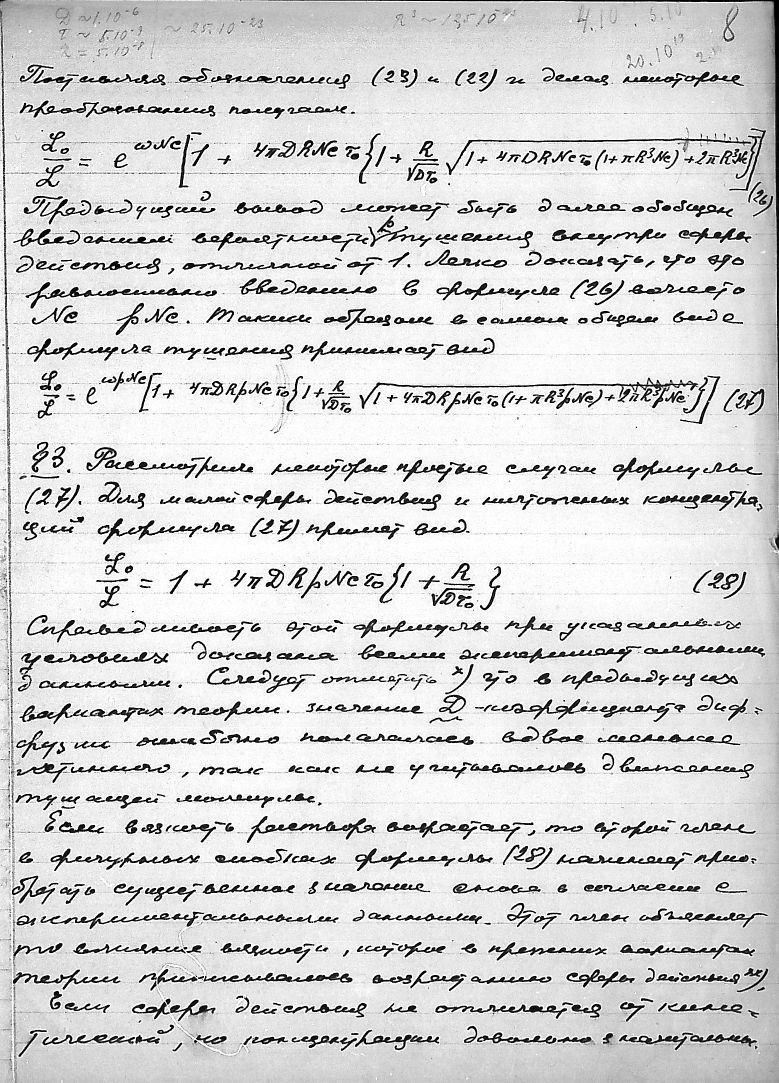 D ~ 1.10⁻⁶
τ ~ 5.10⁻⁹
R = 5.10⁻⁸
~ 25.10⁻²³
4.10
20.10¹⁹
8
Подставляя обозначения (23) и (22) и делая некоторые
преобразования получаем.
L₀/L = e^{ωNc}[1 + 4πDRNcτ₀{1 + R/√Dτ₀ √1 + 4πDRNcτ₀(1+πR³Nc) + 2πR³Nc}]
(26)
Предыдущий вывод может быть далее обобщен
введением вероятности p тушения внутри сферы
действия, отличной от 1. Легко доказать, что это
равносильно введению в формуле (26) вместо
Nc pNc. Таким образом в самом общем виде
формула тушения принимает вид
L₀/L = e^{ωpNc}[1 + 4πDRpNcτ₀{1 + R/√Dτ₀ √1 + 4πDRpNcτ₀(1+πR³pNc) + 2πR³pNc}] (27)
§3. Рассмотрим некоторые простые случаи формулы
(27). Для малой сферы действия и ничтожных концентра-
ций формула (27) примет вид.
L₀/L = 1 + 4πDRpNcτ₀{1 + R/√Dτ₀} (28)
Справедливость этой формулы при указанных
условиях доказана всеми экспериментальными
данными. Следует отметить ˣ) что в предыдущих
вариантах теории. значение D коэффициента диф-
фузии ошибочно полагалась вдвое меньше
истинного, так как не учитывалось движения
тушащей молекулы.
Если вязкость раствора возрастает, то второй член
в фигурных скобках формулы (28) начинает прио-
бретать существенное значение снова в согласии с
экспериментальными данными. Этот член объясняет
то влияние вязкости, которое в прежних вариантах
теории приписывалось возрастанию сферы действия ˣˣ),
Если сфера действия не отличается от кине-
тической, но концентрации довольно значительны.